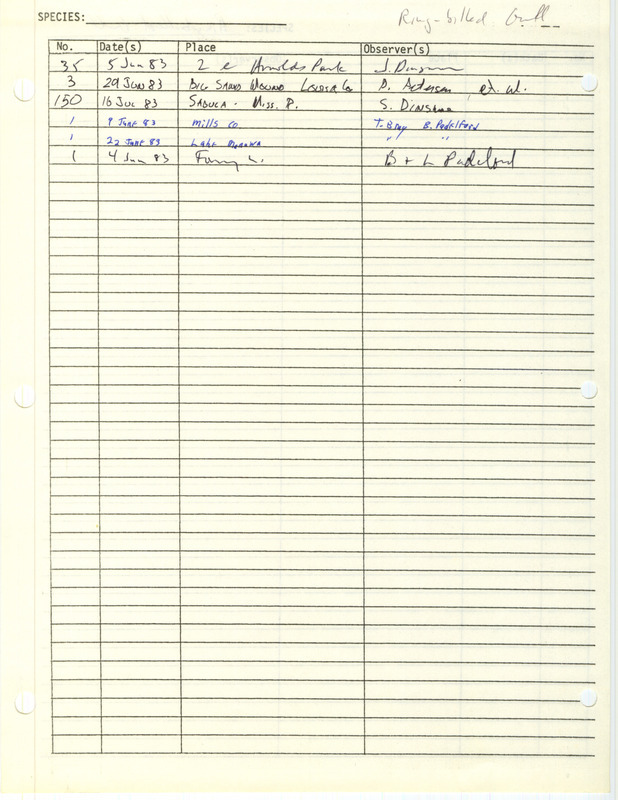 SPECIES: Ring-billed Gull
No. Date(s) Place Observer(s)
35 5 Jun 83 2 e Arnolds Park J. Dinsmore
3 29 Jun 83 Big Sand Mound Louisa Co P. Petersen et. al.
150 16 Jul 83 Sabula - Miss. R. S. Dinsmore
1 9 June 83 Mills Co T. Bray B. Padelford
1 22 June 83 Lake Manawa " "
1 4 Jun 83 B + L Padelford